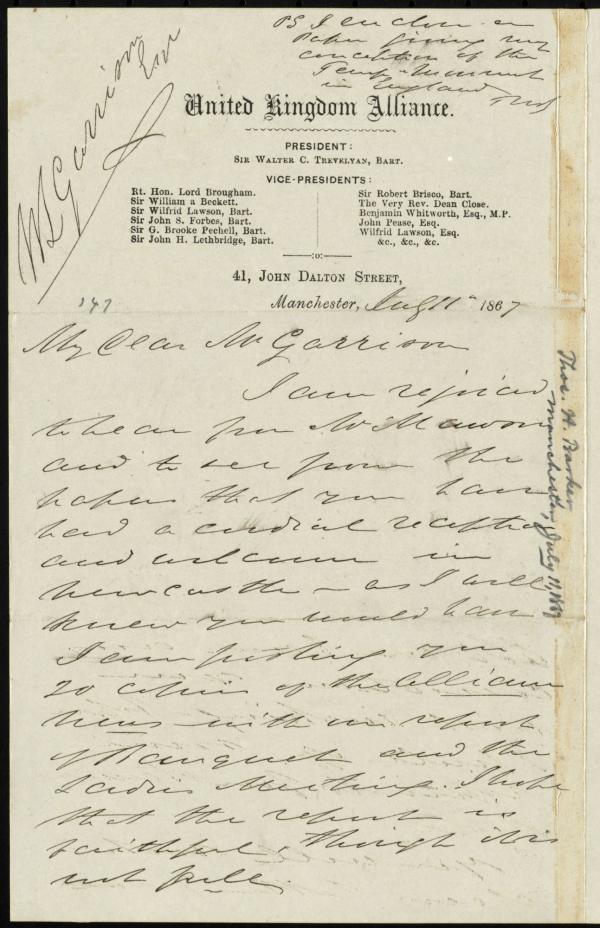 PS I enclose a
Paper giving my
conception of the
Temp. Movement
in England
W L Garrison
Esq
United Kingdom Alliance.
PRESIDENT:
SIR WALTER C. TREVELYAN, BART.
VICE-PRESIDENTS:
Rt. Hon. Lord Brougham.
Sir William a Beckett.
Sir Wilfrid Lawson, Bart.
Sir John S. Forbes, Bart.
Sir G. Brooke Pechell, Bart.
Sir John H. Lethbridge, Bart.
Sir Robert Brisco, Bart.
The Very Rev. Dean Close.
Benjamin Whitworth, Esq., M.P.
John Pease, Esq.
Wilfrid Lawson, Esq.
&c., &c., &c.
41, JOHN DALTON STREET,
Manchester, July 11th 1867
147
My Dear Mr Garrison
I am rejoiced
to hear from Mr Mawson
and to see from the
papers that you have
had a cordial reception
and welcome in
Newcastle – as I well
knew you would have
I am posting you
20 copies of the Alliance
News with our report
of Banquet and the
Ladies Meeting. I hope
that the report is
faithful, though it is
not full.
Thos. H. Barker
Manchester, July 11, 1867